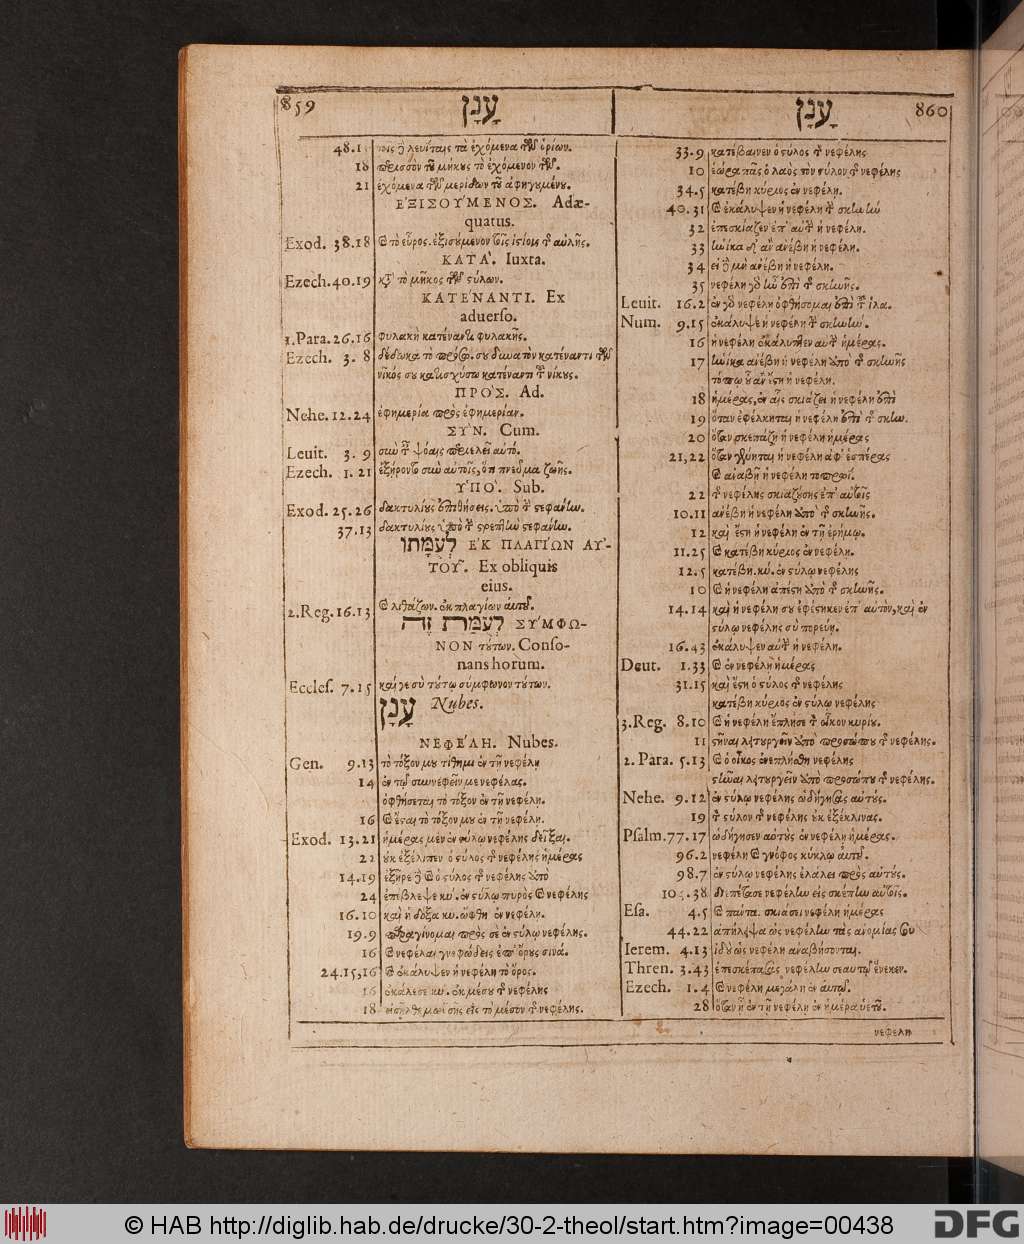 859 עָנָן
48.1 τοῖς ἢ λευίταις τὰ ἐχόμενα τῶν ὁρίων.
18 περισσὸν τοῦ μήκους τὸ ἐχόμενον τῶν.
21 ἐχόμενα τῶν μερίδων τοῦ ἀφηγουμένου.
ἘΞΙΣΟΎΜΕΝΟΣ. Adæ-
quatus.
Exod. 38.18 καὶ τὸ εὖρος. ἐξισούμενον τοῖς ἱστίοις τῆς αὐλῆς.
ΚΑΤΑ'. Iuxta.
Ezech. 40.19 κατὰ τὸ μῆκος τῶν πύλων.
ΚΑΤΕ'ΝΑΝΤΙ. Ex
aduerſo.
1.Para. 26.16 φυλακὴ κατέναντι φυλακῆς.
Ezech. 3. 8 δέδωκα τὸ πρόσωπ. σου δυνατὸν κατέναντι τῶν
νῖκός σου κατισχύσω κατέναντι τοῦ νίκους.
ΠΡΟ'Σ. Ad.
Nehe. 12.24 ἐφημερία πρὸς ἐφημερίαν.
ΣΥ'Ν. Cum.
Leuit. 3. 9 σὺν ταῖς ψόαις περιελεῖ αὐτό.
Ezech. 1. 21 ἐξήροντο σὺν αὐτοῖς, ὅτι πνεῦμα ζωῆς.
ὙΠΟ'. Sub.
Exod. 25.26 δακτυλίους ἐπιθήσεις. ὑπὸ τὴν στεφάνην.
37.13 δακτυλίους ὑπὸ τὴν στρεπτὴν στεφάνην.
לְעֻמָּתוֹ ἘΚ ΠΛΑΓΊΩΝ ΑΥ'-
ΤΟΥ~. Ex obliquis
eius.
2.Reg. 16.13 καὶ λιθάζων. ἐκ πλαγίων αὐτοῦ.
לְעֻמַּת זֶה ΣΥΜΦΩ-
ΝΟΝ τούτων. Conſo-
nans horum.
Eccleſ. 7.15 καί γε σὺ τούτῳ σύμφωνον τούτων.
עָנָן Nubes.
ΝΕΦΕ'ΛΗ. Nubes.
Gen. 9.13 τὸ τόξον μου τίθημι ἐν τῇ νεφέλῃ
14 ἐν τῷ συννεφεῖν με νεφέλας.
ὀφθήσεται τὸ τόξον ἐν τῇ νεφέλῃ.
16 καὶ ἔσται τὸ τόξον μου ἐν τῇ νεφέλῃ.
Exod. 13.21 ἡμέρας μὲν ἐν στύλῳ νεφέλης δεῖξαι.
22 οὐκ ἐξέλιπεν ὁ στύλος τῆς νεφέλης ἡμέρας
14.19 ἐξῆρε ἢ καὶ ὁ στύλος τῆς νεφέλης ἀπὸ
24 ἐπέβλεψε κύ. ἐν στύλῳ πυρὸς καὶ νεφέλης
16.10 καὶ ἡ δόξα κυ. ὤφθη ἐν νεφέλῃ.
19.9 παραγίνομαι πρὸς σὲ ἐν στύλῳ νεφέλης.
16 καὶ νεφέλαι γνοφώδεις ἐπ' ὄρους σινά.
24.15,16 καὶ ἐκάλυψεν ἡ νεφέλη τὸ ὄρος.
16 ἐκάλεσε κυ. ἐκ μέσου τῆς νεφέλης
18 εἰσῆλθε μωϋσῆς εἰς τὸ μέσον τῆς νεφέλης.
עָנָן 860
33.9 κατέβαινεν ὁ στύλος τῆς νεφέλης
10 ἑώρα πᾶς ὁ λαὸς τὸν στύλον τῆς νεφέλης
34.5 κατέβη κύριος ἐν νεφέλῃ.
40.31 καὶ ἐκάλυψεν ἡ νεφέλη τὴν σκηνὴν
32 ἐπεσκίαζεν ἐπ' αὐτὴν ἡ νεφέλη.
33 ἡνίκα δ' ἂν ἀνέβη ἡ νεφέλη.
34 εἰ ἢ μὴ ἀνέβη ἡ νεφέλη.
35 νεφέλη γὰρ ἦν ἐπὶ τῆς σκηνῆς.
Leuit. 16.2 ἐν γὰρ νεφέλῃ ὀφθήσομαι ἐπὶ τοῦ ἱλα.
Num. 9.15 ἐκάλυψε ἡ νεφέλη τὴν σκηνήν.
16 ἡ νεφέλη ἐκάλυπτεν αὐτὴν ἡμέρας.
17 ἡνίκα ἀνέβη ἡ νεφέλη ἀπὸ τῆς σκηνῆς
τόπῳ οὗ ἂν ἔστη ἡ νεφέλη.
18 ἡμέρας, ἐν αἷς σκιάζει ἡ νεφέλη ἐπὶ
19 ὅταν ἐφέλκηται ἡ νεφέλη ἐπὶ τῆς σκην.
20 ὅταν σκεπάζῃ ἡ νεφέλη ἡμέρας
21,22 ὅταν γένηται ἡ νεφέλη ἀφ' ἑσπέρας
καὶ ἀναβῇ ἡ νεφέλη τοπρωί.
22 τῆς νεφέλης σκιαζούσης ἐπ' αὐτῆς
10.11 ἀνέβη ἡ νεφέλη ἀπὸ τῆς σκηνῆς.
12 καὶ ἔστη ἡ νεφέλη ἐν τῇ ἐρήμῳ.
11.25 καὶ κατέβη κύριος ἐν νεφέλῃ.
12.5 κατέβη. κύ. ἐν στύλῳ νεφέλης
10 καὶ ἡ νεφέλη ἀπέστη ἀπὸ τῆς σκηνῆς.
14.14 καὶ ἡ νεφέλη σου ἐφέστηκεν ἐπ' αὐτῶν, καὶ ἐν
στύλῳ νεφέλης σὺ πορεύῃ.
16.43 ἐκάλυψεν αὐτὴν ἡ νεφέλη.
Deut. 1.33 καὶ ἐν νεφέλῃ ἡμέρας
31.15 καὶ ἔστη ὁ στύλος τῆς νεφέλης
κατέβη κύριος ἐν στύλῳ νεφέλης
3.Reg. 8.10 καὶ ἡ νεφέλη ἔπλησε τὸν οἶκον κυρίου.
11 στῆναι λειτουργεῖν ἀπὸ προσώπου τῆς νεφέλης.
2. Para. 5.13 καὶ ὁ οἶκος ἐνεπλήσθη νεφέλης
στῆναι λειτουργεῖν ἀπὸ προσώπου τῆς νεφέλης.
Nehe. 9.12 ἐν στύλῳ νεφέλης ὡδήγησας αὐτούς.
19 τὸν στύλον τῆς νεφέλης οὐκ ἐξέκλινας.
Pſalm. 77.17 ὡδήγησεν αὐτοὺς ἐν νεφέλῃ ἡμέρας.
96.2 νεφέλη καὶ γνόφος κύκλῳ αὐτοῦ.
98.7 ἐν στύλῳ νεφέλης ἐλάλει πρὸς αὐτούς.
104.38 διεπέτασε νεφέλην εἰς σκέπην αὐτοῖς.
Eſa. 4.5 καὶ πάντα. σκιάσει νεφέλη ἡμέρας
44.22 ἀπήλειψα ὡς νεφέλην τὰς ἀνομίας σου
Ierem. 4.13 ἰδοὺ ὡς νεφέλη ἀναβήσονται.
Thren. 3.43 ἐπεσκέπασας νεφέλην σεαυτῷ ἕνεκεν.
Ezech. 1.4 καὶ νεφέλη μεγάλη ἐν αὐτῷ.
28 ὅταν ᾖ ἐν τῇ νεφέλῃ ἐν ἡμέρᾳ ὑετοῦ.
νεφέλη
© HAB http://diglib.hab.de/drucke/30-2-theol/start.htm?image=00438
DFG